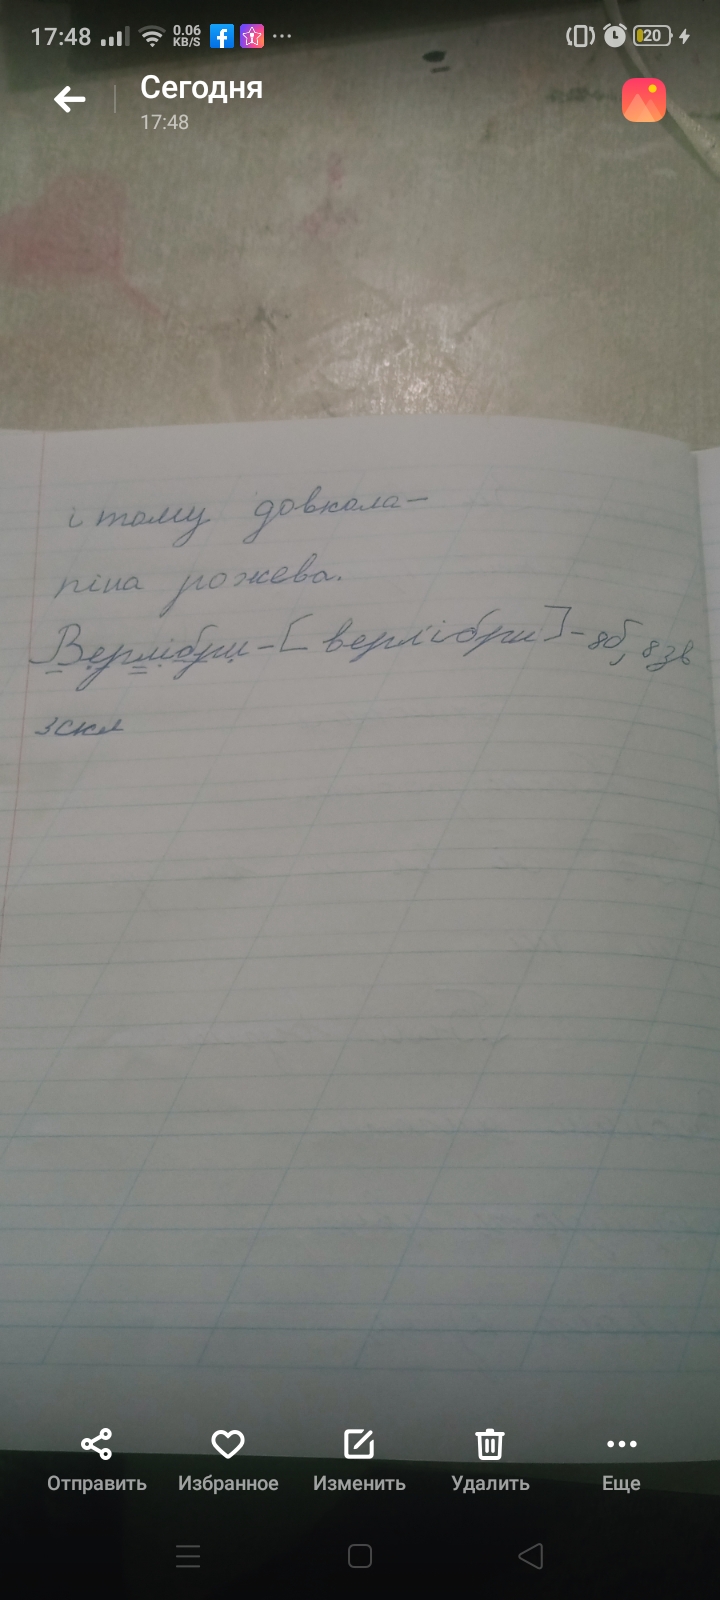 17:48 0.06 KB/S 20
Сегодня
17:48
і тому довкола–
піна рожева.
Верлібри – [верл'ібри] – 8б, 8зв
3скл
Отправить Избранное Изменить Удалить Еще